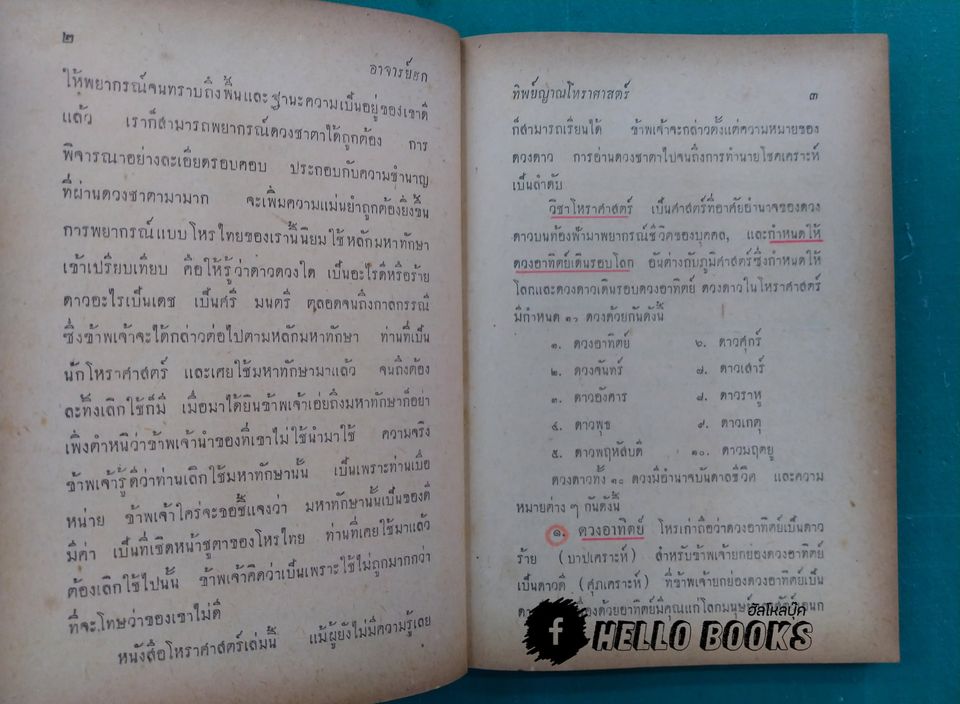 ๒
อาจารย์ยก
ให้พยากรณ์จนทราบถึงพื้นและฐานะความเป็นอยู่ของเขาดี
แล้ว เราก็สามารถพยากรณ์ดวงชาตาได้ถูกต้อง การ
พิจารณาอย่างละเอียดรอบคอบ ประกอบกับความชำนาญ
ที่ผ่านดวงชาตามามาก จะเพิ่มความแม่นยำถูกต้องยิ่งขึ้น
การพยากรณ์แบบโหรไทยของเรานั้นนิยมใช้หลักมหาทักษา
เข้าเปรียบเทียบ คือให้รู้ว่าดาวดวงใด เป็นอะไรดีหรือร้าย
ดาวอะไรเป็นเดช เป็นศรี มนตรี ตลอดจนถึงกาลกรรณี
ซึ่งข้าพเจ้าจะได้กล่าวต่อไปตามหลักมหาทักษา ท่านที่เป็น
นักโหราศาสตร์ และเคยใช้มหาทักษามาแล้ว จนถึงต้อง
ละทิ้งเลิกใช้ก็มี เมื่อมาได้ยินข้าพเจ้าเอ่ยถึงมหาทักษาก็อย่า
เพิ่งตำหนิว่าข้าพเจ้านำของที่เขาไม่ใช้นำมาใช้ ความจริง
ข้าพเจ้ารู้ดีว่าท่านเลิกใช้มหาทักษานั้น เป็นเพราะท่านเบื่อ
หน่าย ข้าพเจ้าใคร่จะขอชี้แจงว่า มหาทักษานั้นเป็นของดี
มีค่า เป็นที่เชิดหน้าชูตาของโหรไทย ท่านที่เคยใช้มาแล้ว
ต้องเลิกใช้ไปนั้น ข้าพเจ้าคิดว่าเป็นเพราะใช้ไม่ถูกมากกว่า
ที่จะโทษว่าของเขาไม่ดี
หนังสือโหราศาสตร์เล่มนี้ แม้ผู้ยังไม่มีความรู้เลย
ทิพย์ญาณโหราศาสตร์ ๓
ก็สามารถเรียนได้ ข้าพเจ้าจะกล่าวตั้งแต่ความหมายของ
ดวงดาว การอ่านดวงชาตาไปจนถึงการทำนายโชคเคราะห์
เป็นลำดับ
วิชาโหราศาสตร์ เป็นศาสตร์ที่อาศัยอำนาจของดวง
ดาวบนท้องฟ้ามาพยากรณ์ชีวิตของบุคคล, และกำหนดให้
ดวงอาทิตย์เดินรอบโลก อันต่างกับภูมิศาสตร์ซึ่งกำหนดให้
โลกและดวงดาวเดินรอบดวงอาทิตย์ ดวงดาวในโหราศาสตร์
มีกำหนด ๑๐ ดวงด้วยกันดังนี้
๑. ดวงอาทิตย์ ๖. ดาวศุกร์
๒. ดวงจันทร์ ๗. ดาวเสาร์
๓. ดาวอังคาร ๘. ดาวราหู
๔. ดาวพุธ ๙. ดาวเกตุ
๕. ดาวพฤหัสบดี ๑๐. ดาวมฤตยู
ดวงดาวทั้ง ๑๐ ดวงมีอำนาจบันดาลชีวิต และความ
หมายต่าง ๆ กันดังนี้
๑. ดวงอาทิตย์ โหรเก่าถือว่าดวงอาทิตย์เป็นดาว
ร้าย (บาปเคราะห์) สำหรับข้าพเจ้ายกย่องดวงอาทิตย์
เป็นดาวดี (ศุภเคราะห์) ที่ข้าพเจ้ายกย่องดวงอาทิตย์เป็น
ด้วยอาทิตย์มีคุณแก่โลกมนุษย์
ฮัลโหลบุ๊ค
f HELLO BOOKS